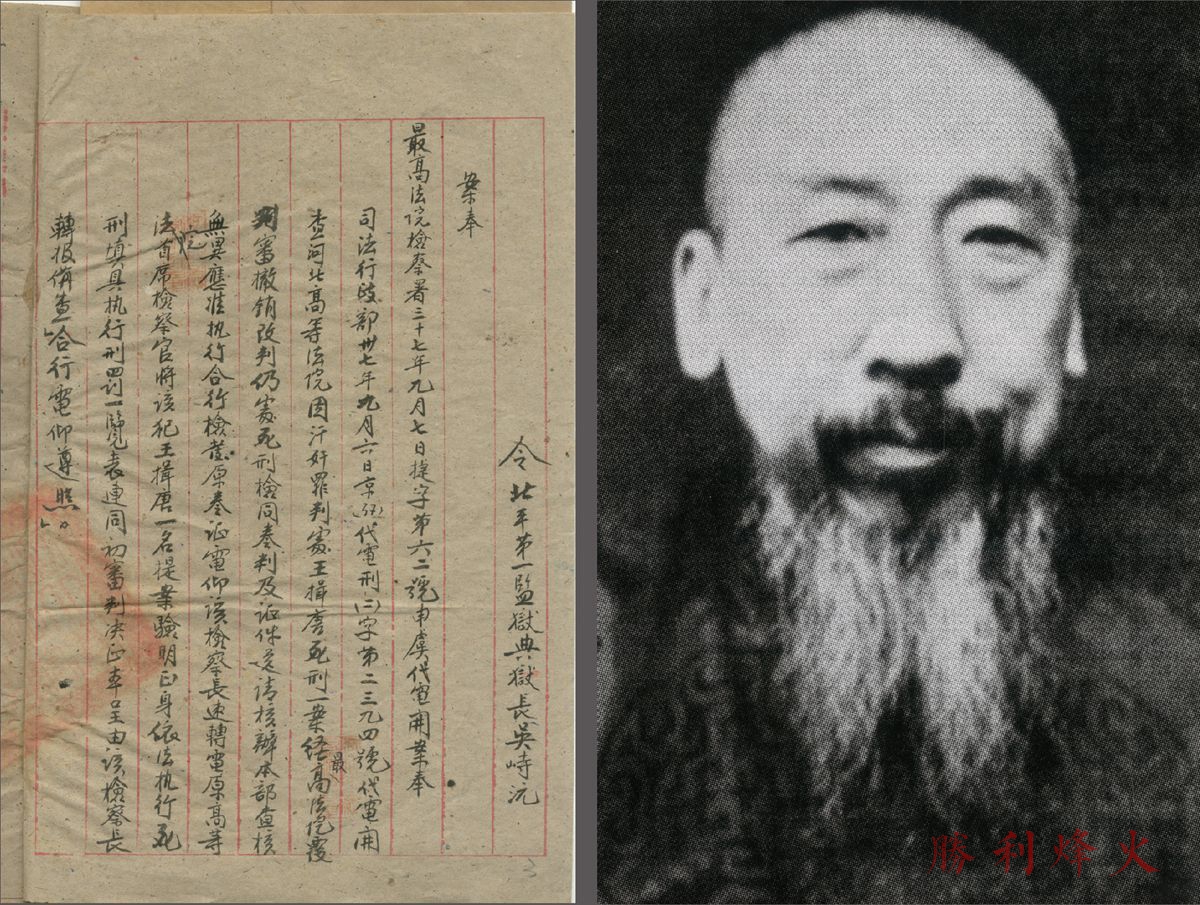 令北平第一監獄典獄長吳峙沅
案奉
最高法院檢察署三十七年九月七日捷字第六二號申虞代電開案奉
司法行政部卅七年九月六日京(37)代電刑(二)字第二三九四號代電開
查河北高等法院因汗奸罪判處王揖唐死刑一案経最高法院覆
判審撤銷改判仍處死刑檢同卷判及证件送请核辦本部查核
無異應准执行合行檢發原卷证電仰该檢察長速轉電原高等
法院首席檢察官将该犯王揖唐一名提案驗明正身依法执行死
刑填具执行刑罰一覽表連同初審判决正本呈由该檢察長
轉报俻查合行電仰遵照
3
勝利烽火